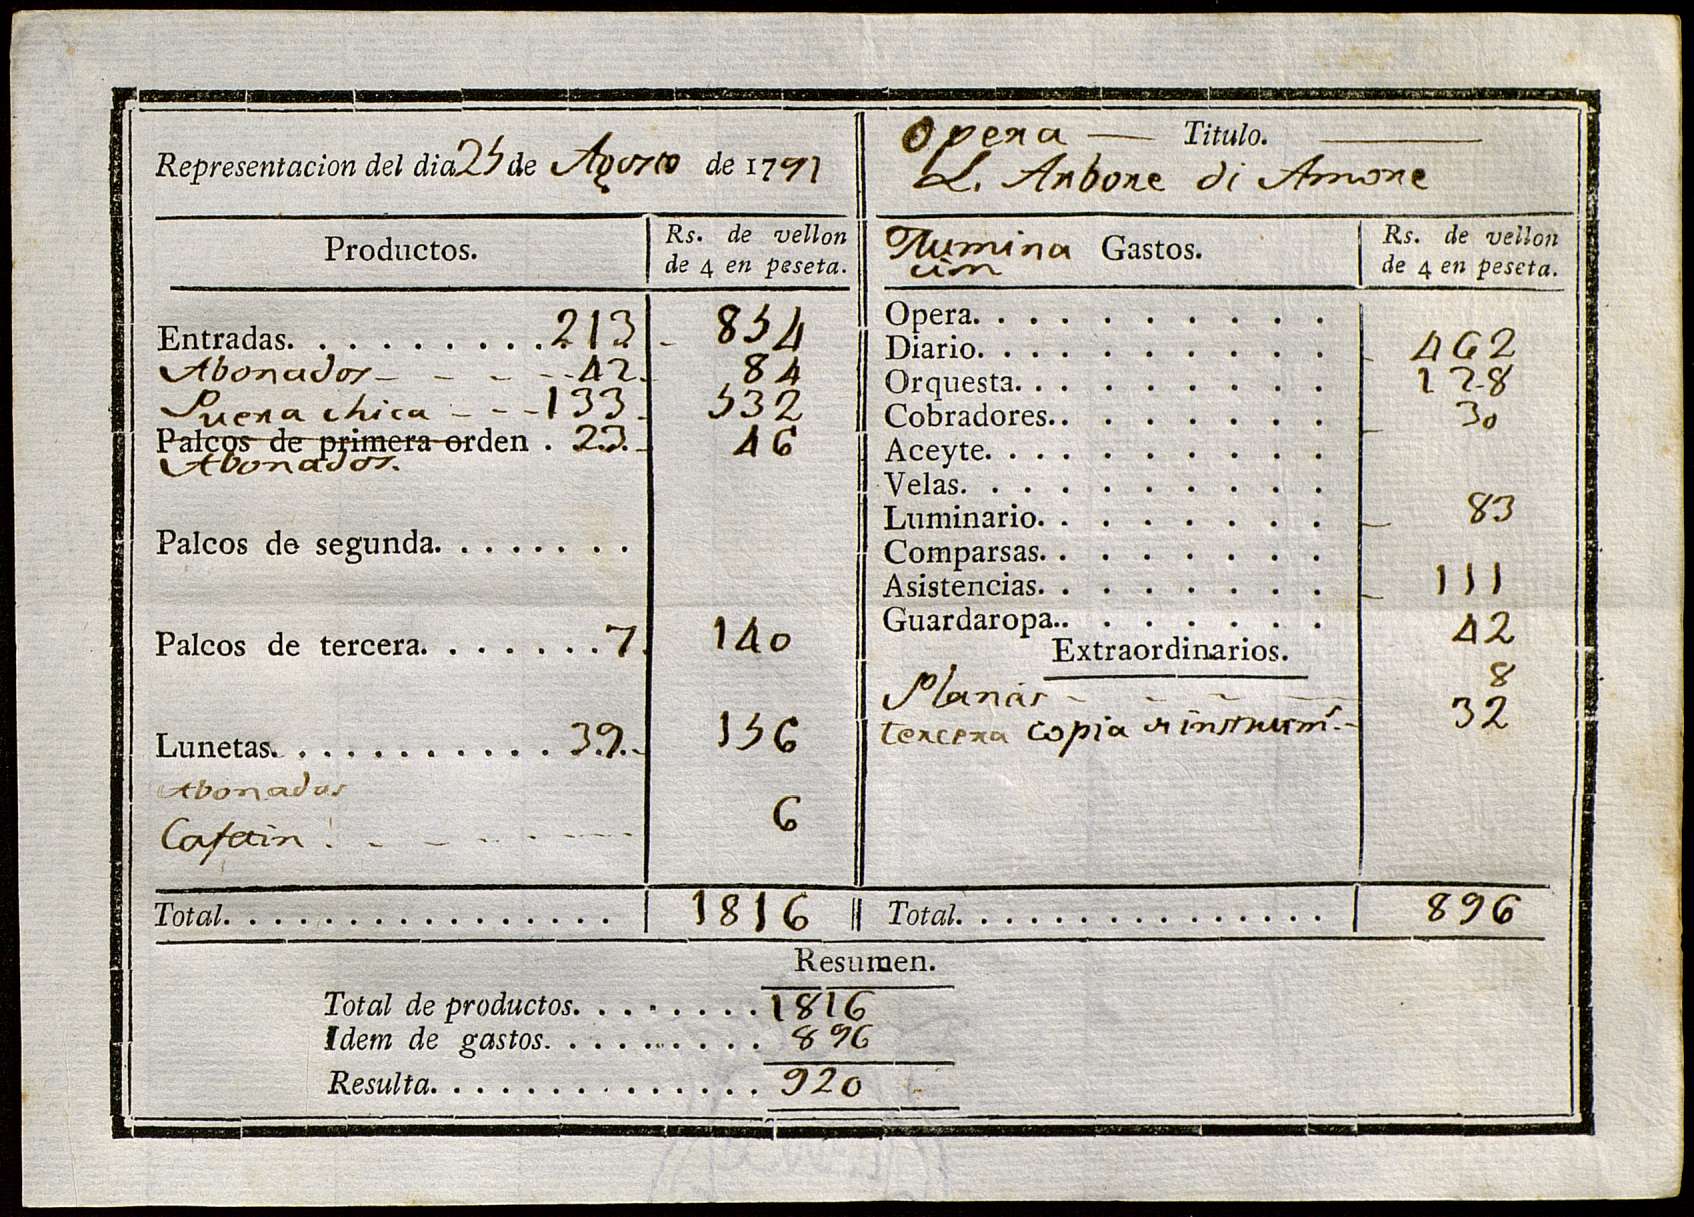 Representacion del dia 25 de Agosto de 1791
Opera — Titulo.
L. Arbore di Amore
Productos.
Rs. de vellon
de 4 en peseta.
Entradas. . . . . . . . . . 213. 854
Abonados - - - - 42. 84
Puerta chica - - - 133. 532
Palcos de primera orden . 23. 46
Abonados.
Palcos de segunda. . . . . . . .
Palcos de tercera. . . . . . . . 7. 140
Lunetas. . . . . . . . . . . . 39. 156
Abonadas
Cafetin . - - - 6
Total. . . . . . . . . . . . . . . . 1816
Ilumina
cion
Gastos.
Rs. de vellon
de 4 en peseta.
Opera. . . . . . . . . . .
Diario. . . . . . . . . . . 462
Orquesta. . . . . . . . . . 128
Cobradores.. . . . . . . . . 30
Aceyte. . . . . . . . . . .
Velas. . . . . . . . . . .
Luminario. . . . . . . . . 83
Comparsas. . . . . . . . .
Asistencias. . . . . . . . . 111
Guardaropa.. . . . . . . . 42
Extraordinarios.
Planas - - - - 8
tercera copia de instrum.s - 32
Total. . . . . . . . . . . . . . . . 896
Resumen.
Total de productos. . . . . . . . . 1816
Idem de gastos. . . . . . . . . . 896
Resulta. . . . . . . . . . . . . . 920